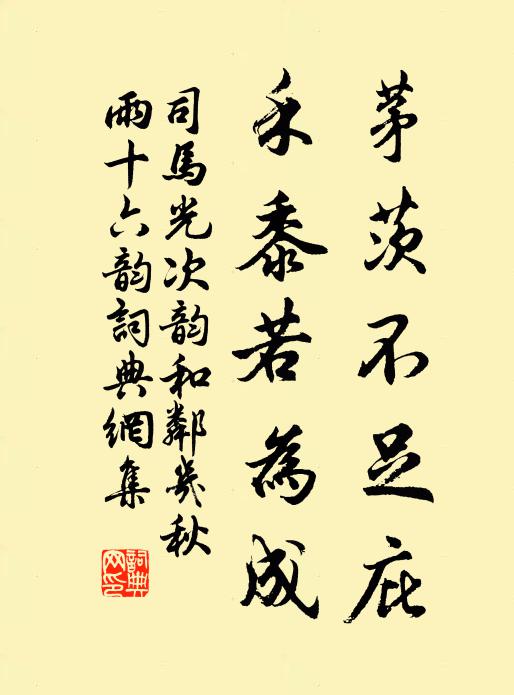 茅茨不足庇
禾黍若為成
司馬光次韵和鄰幾秋
雨十六韵詞典網集
詞典
网印